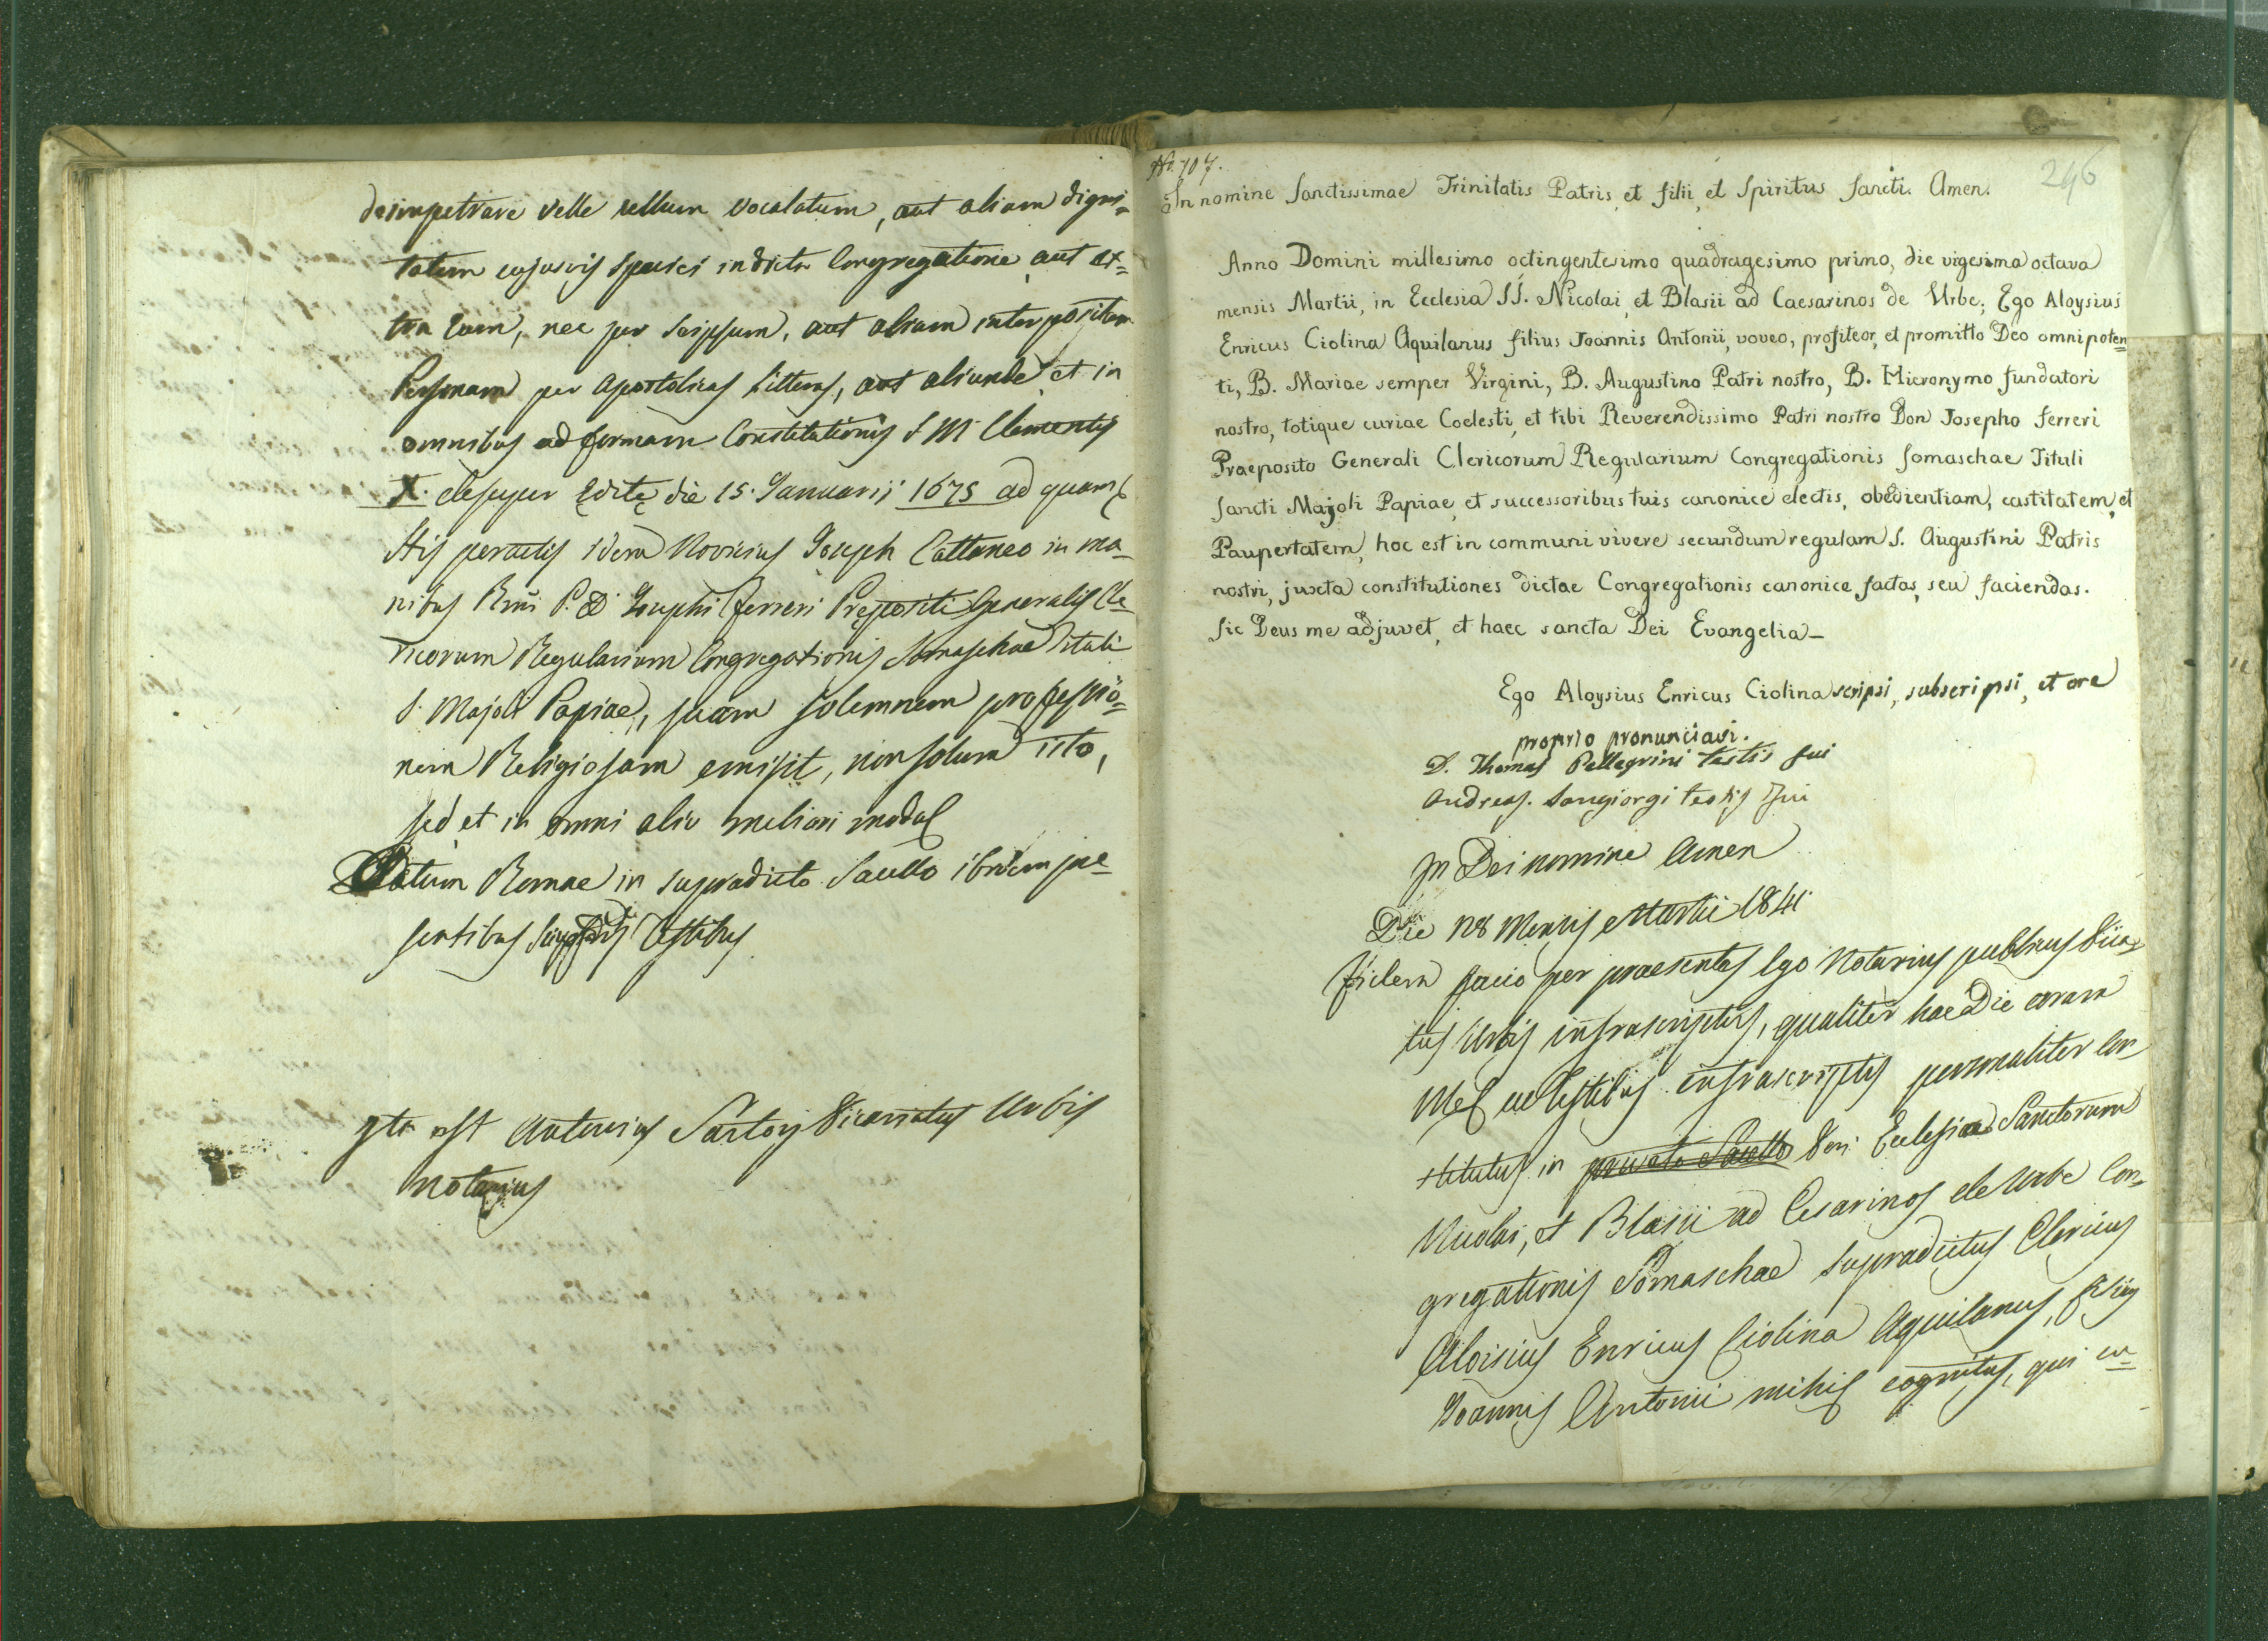 deimpetrare velle nullum vocalatum, aut aliam digni=
tatem cujusvis speciei in dicta Congregatione aut ex=
tra eam, nec per seipsum, aut aliam interpositam
Personam per Apostolicas Litteras, aut aliunde et in
omnibus ad formam Constitutionis S M Clementis
X. desuper Editę die 15. Januarii 1675 ad quam
His peractis idem Novicius Joseph Cattaneo in ma=
nibus Rmi P. D. Josephi Ferreri Prepositi Generalis Cle=
ricorum Regularium Congregationis Somaschae Tituli
S. Majoli Papiae, suam solemnem professio=
nem Religiosam emisit, non solum isto,
sed et in omni alio meliori modo
Datum Romae in supradicto Sacello ibidem prae=
sentibus Testibus
Ita est Antonius Sartorj Vicariatus Urbis
Notarius
No. 107.
296
In nomine Sanctissimae Trinitatis Patris, et filii, et Spiritus Sancti. Amen.
Anno Domini millesimo octingentesimo quadragesimo primo, die vigesima octava
mensis Martii, in Ecclesia SS. Nicolai, et Blasii ad Caesarinos de Urbe; Ego Aloysius
Enricus Ciolina Aquilanus filius Joannis Antonii, voveo, profiteor, et promitto Deo omnipoten=
ti, B. Mariae semper Virgini, B. Augustino Patri nostro, B. Hieronymo fundatori
nostro, totique curiae Coelesti, et tibi Reverendissimo Patri nostro Don Josepho Ferreri
Praeposito Generali Clericorum Regularium Congregationis Somaschae Tituli
Sancti Majoli Papiae, et successoribus tuis canonice electis, obedientiam, castitatem, et
Paupertatem, hoc est in communi vivere secundum regulam S. Augustini Patris
nostri, juxta constitutiones dictae Congregationis canonice factas, seu faciendas.
Sic Deus me adjuvet, et haec sancta Dei Evangelia_
Ego Aloysius Enricus Ciolina scripsi, subscripsi, et ore
proprio pronunciavi.
D. Thomas Pellegrini testis fui
Andreas Sangiorgi testis fui
In Dei nomine Amen
Die 28 Mensis Martii 1841
Fidem facio per praesentes Ego Notarius publicus Vica=
tus Urbis infrascriptus, qualiter hac Die coram
Me ac Testibus infrascriptis personaliter con=
stitutus in privato Sacello Ven: Ecclesiae Sanctorum
Nicolai, et Blasii ad Cesarinos de Urbe Con=
gregationis Somaschae supradictus Clericus
Aloisius Enricus Ciolina Aquilanus, filius
Joannis Antonii mihi cognitus, qui cu=